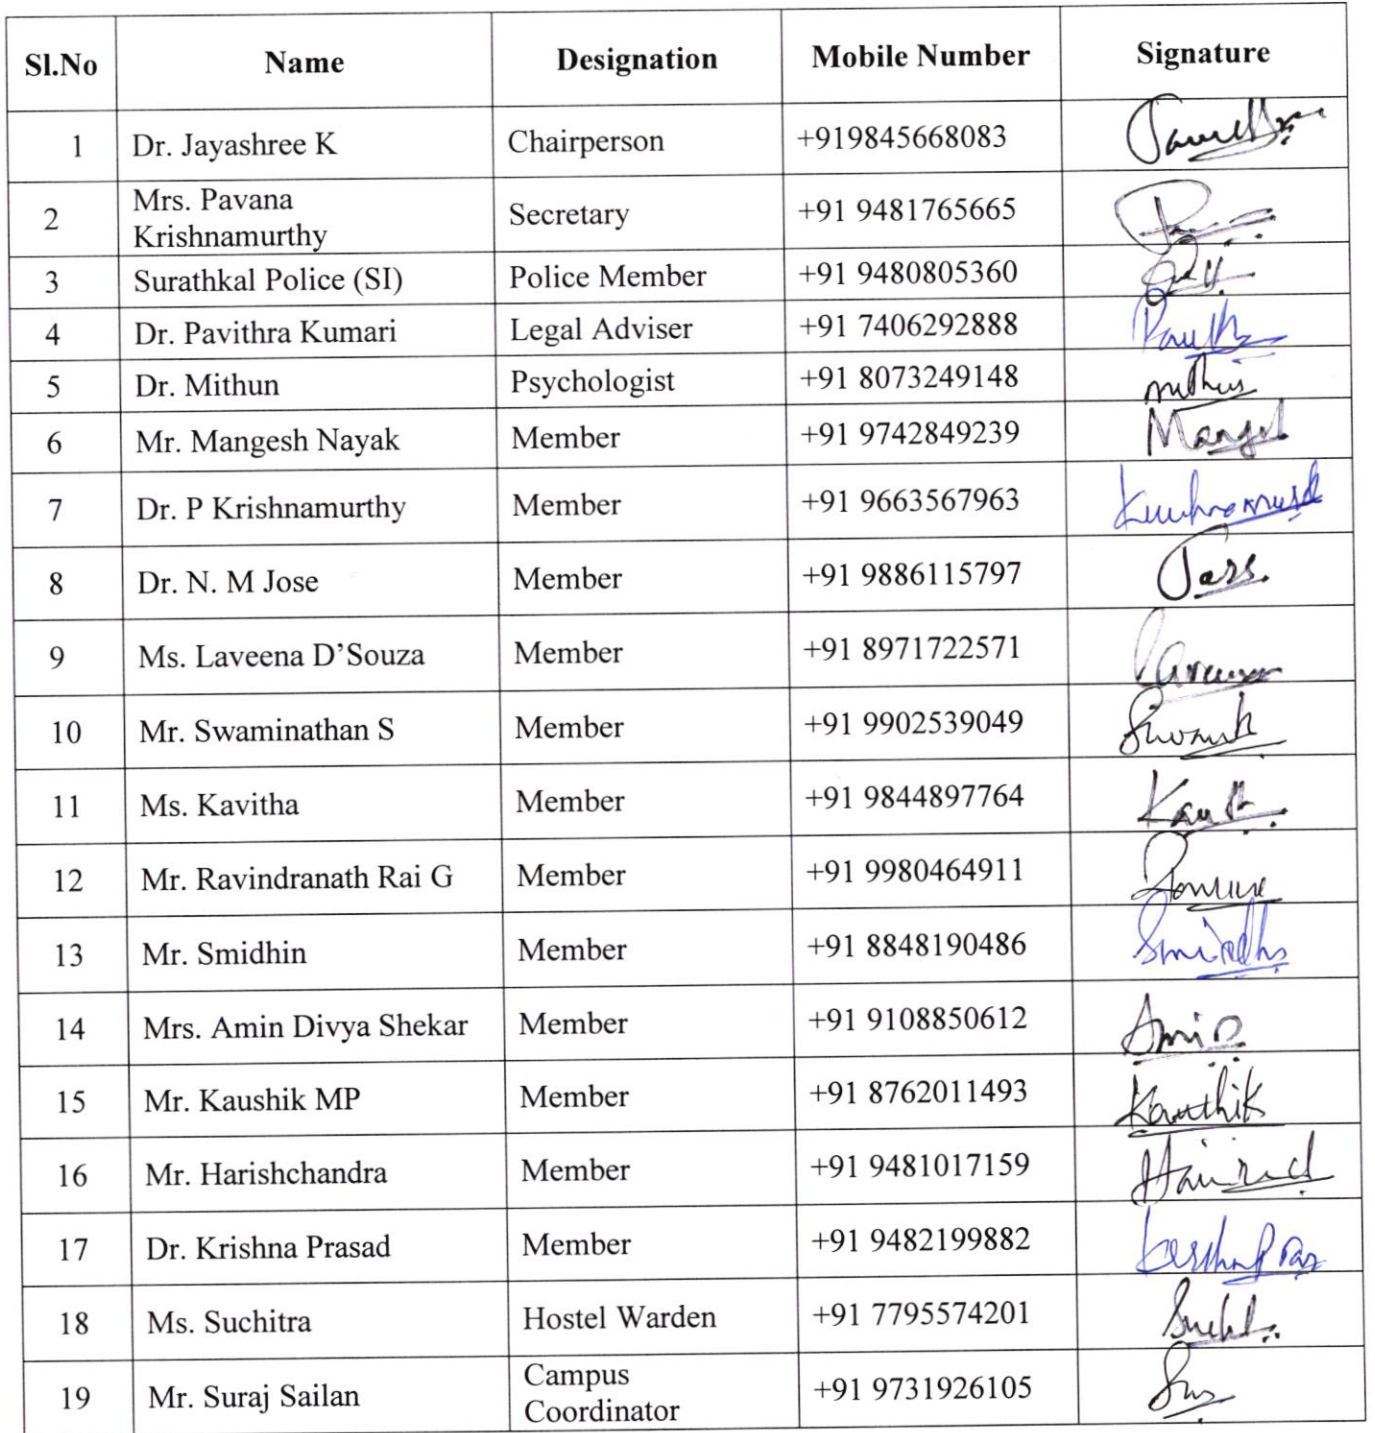 Sl.No Name Designation Mobile Number Signature
1 Dr. Jayashree K Chairperson +919845668083
2 Mrs. Pavana
Krishnamurthy Secretary +91 9481765665
3 Surathkal Police (SI) Police Member +91 9480805360
4 Dr. Pavithra Kumari Legal Adviser +91 7406292888
5 Dr. Mithun Psychologist +91 8073249148
6 Mr. Mangesh Nayak Member +91 9742849239
7 Dr. P Krishnamurthy Member +91 9663567963
8 Dr. N. M Jose Member +91 9886115797
9 Ms. Laveena D’Souza Member +91 8971722571
10 Mr. Swaminathan S Member +91 9902539049
11 Ms. Kavitha Member +91 9844897764
12 Mr. Ravindranath Rai G Member +91 9980464911
13 Mr. Smidhin Member +91 8848190486
14 Mrs. Amin Divya Shekar Member +91 9108850612
15 Mr. Kaushik MP Member +91 8762011493
16 Mr. Harishchandra Member +91 9481017159
17 Dr. Krishna Prasad Member +91 9482199882
18 Ms. Suchitra Hostel Warden +91 7795574201
19 Mr. Suraj Sailan Campus
Coordinator +91 9731926105